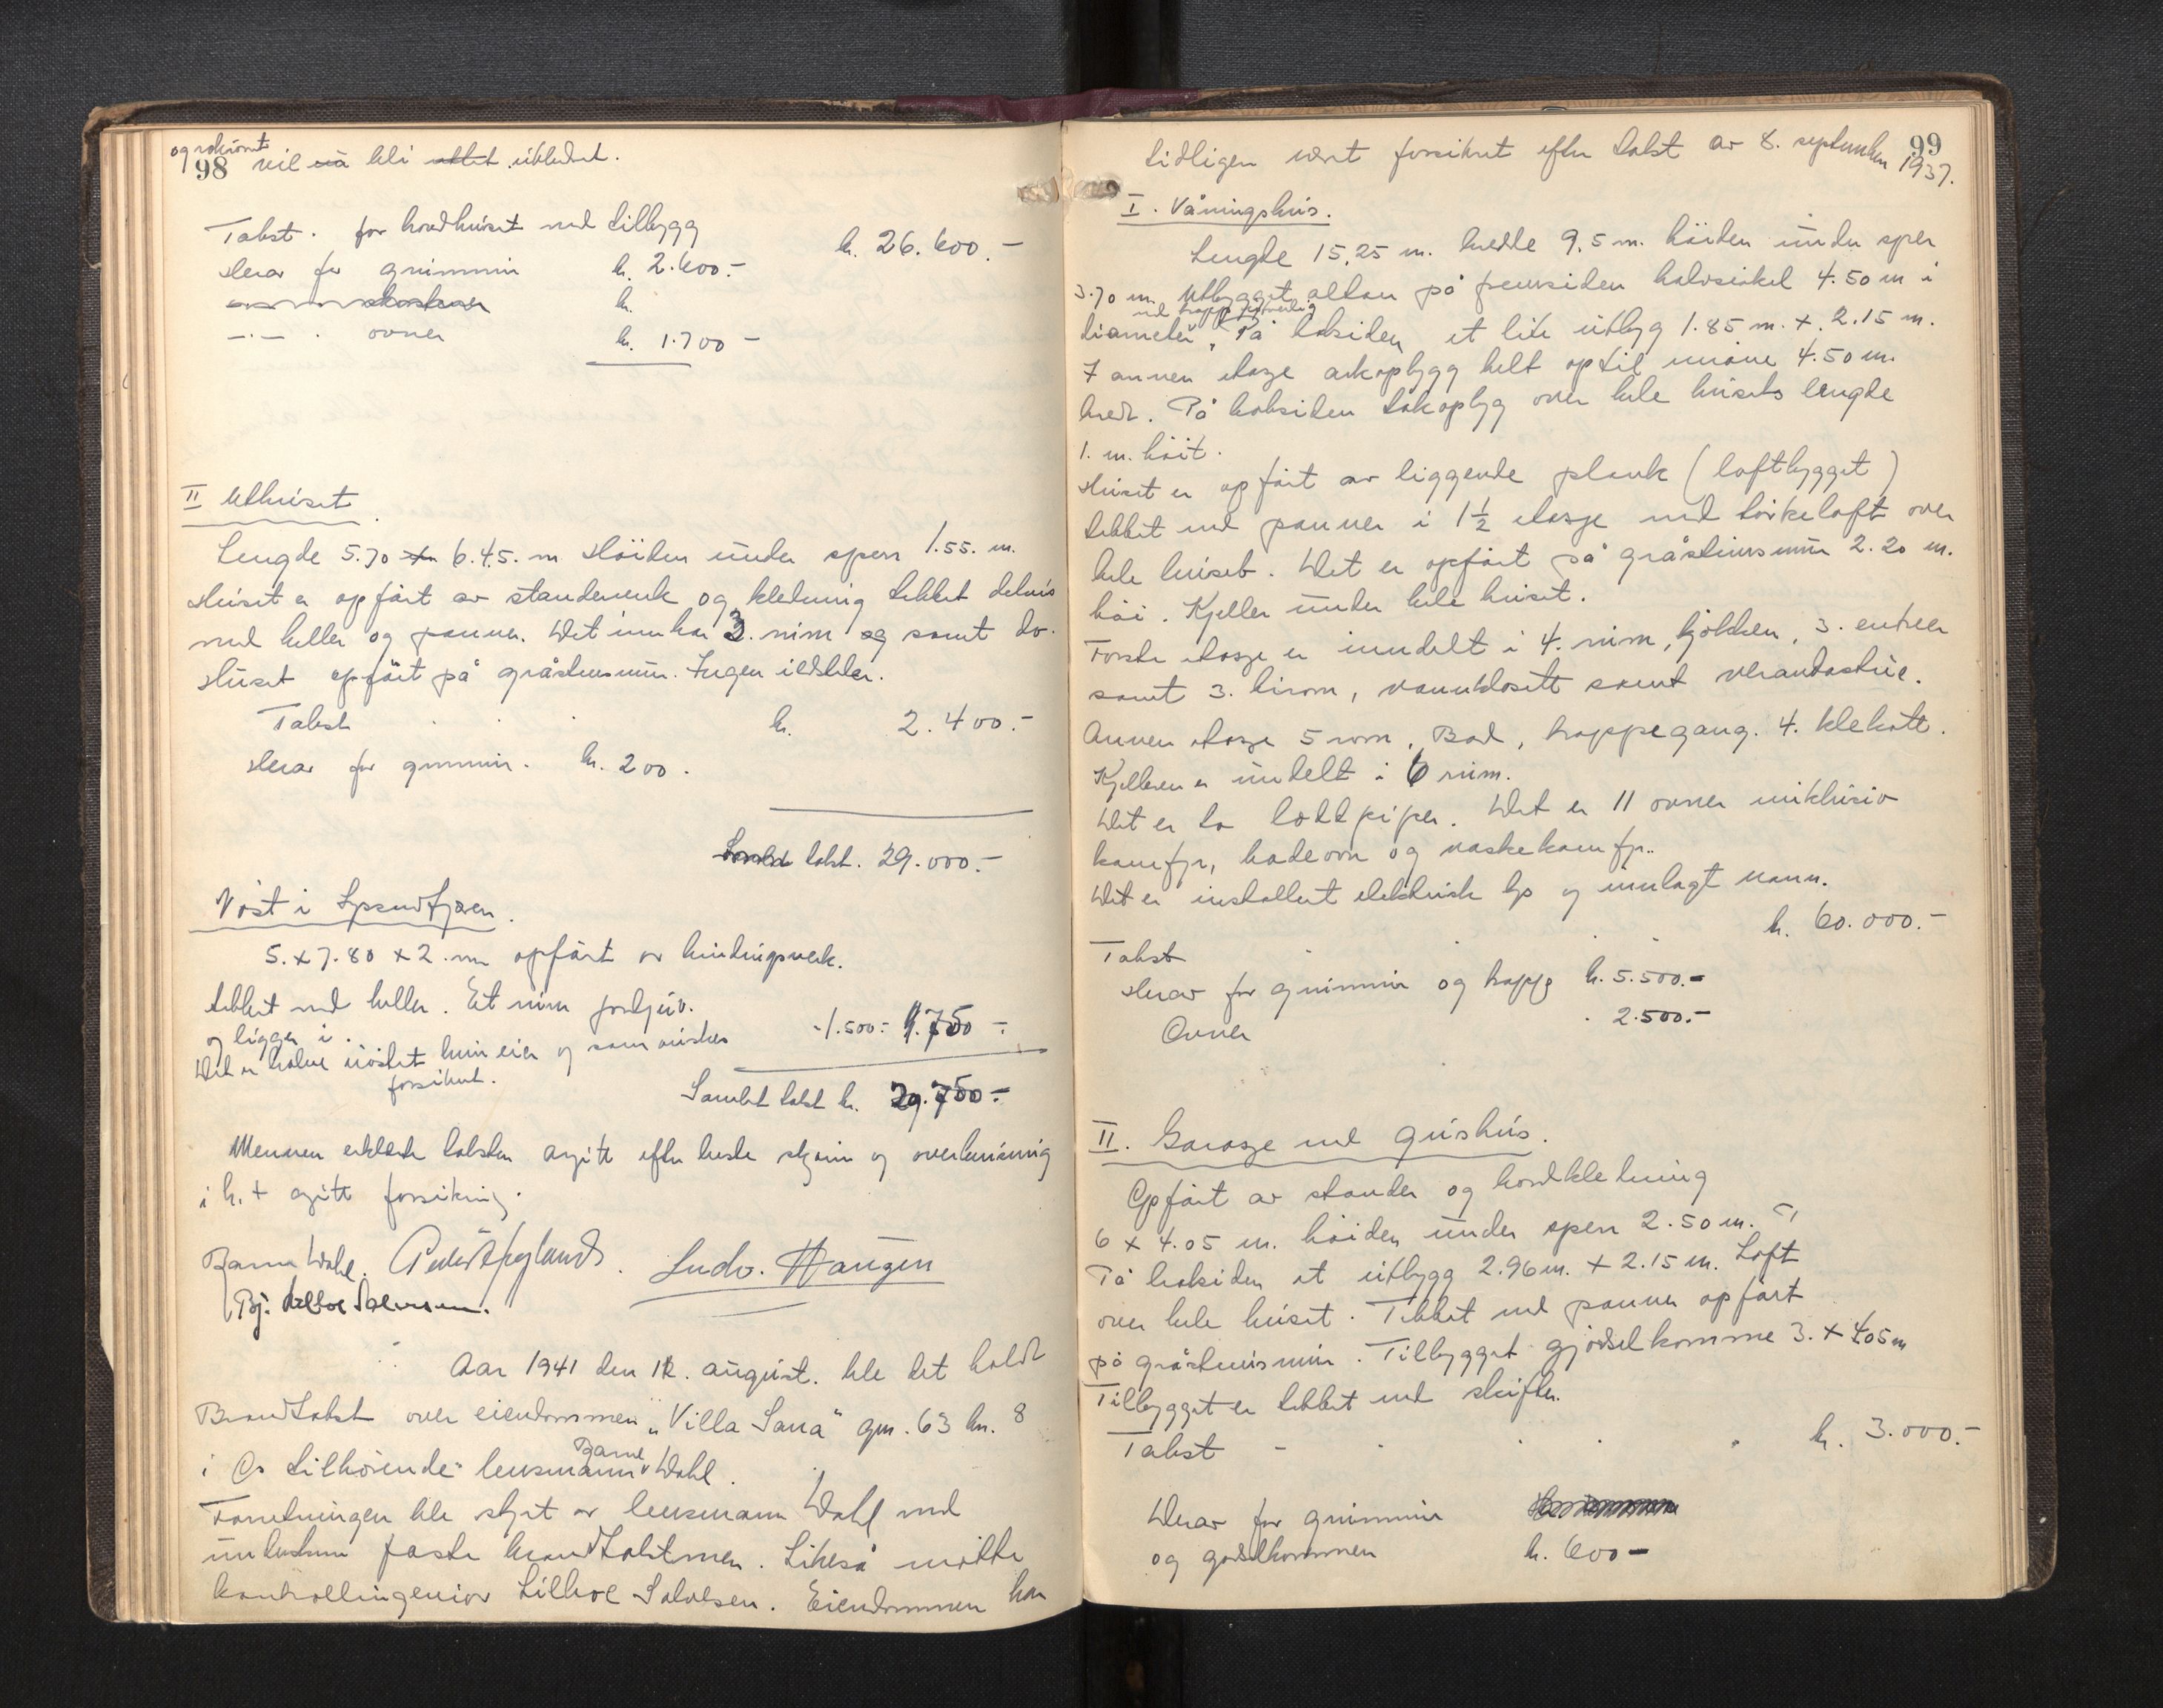 98
og rekvirent
vil bli utbedret.
Takst. for hovedhuset med tilbygg kr. 26.600.-
Herav for grunnmur kr. 2.600.-
kr.
-"- . ovner kr. 1.700 -
II Uthuset.
Lengde 5.70 6.45. m Höiden under sperr 1.55. m.
Huset er opfört av stenderverk og kledning tekket delvis
med heller og panner. Det inneh. 3. rum og samt do.
Huset opfört på gråstensmur. Ingen ildsteder.
Takst . . . kr. 2.400.-
Herav for grunnmur. kr. 200.
takst. 29.000.-
Nöst i
5. x 7.80 x 2. m opfört av bindingsverk.
tekket med heller. Et rum
og ligger i . -1.500:- 750 -
Det er halve nöstet hun eier og som önskes
forsikret.
Samlet takst kr. 29.750.-
Mennene erklærte taksten avgitt efter beste skjönn og overbevisning
i h. t avgitt forsikring.
Bjarne Dahl. Ludv. Haugen
Aar 1941 den 12. august. ble det holdt
Brandtakst over eiendommen "Villa Sana" gnr. 63 bn. 8
i Os tilhörende lensmann Bjarne Dahl.
Forretningen ble styrt av lensmann Dahl med
undertegnede faste brandtakstmen. Likeså mötte
kontrollingeniör Salvesen. Eiendommen har
99
tidligere vært forsikret efter takst av 8. september 1937.
I. Våningshus.
Lengde 15,25 m. bredde 9.5 m. höiden under sper
3.70 m. Utbygget altan på fremsiden halvsirkel 4.50 m i
med trapp
diameter, På baksiden et lite utbyg 1.85 m. x. 2.15 m.
I annen etasje arkoplygg helt op til möne 4.50 m.
bredt. På baksiden takopbyg over hele husets lengde
1. m. höit.
Huset er opfört av liggende plank (laftbygget)
tekket med panner i 1½ etasje med törkeloft over
hele huset. Det er opfört på gråstensmur 2.20 m.
höi. Kjeller under hele huset.
Förste etasje er inndelt i 4. rum, kjökken, 3. entreer
samt 3. birom, vannklosett samt verandastue.
Annen etasje 5 rom, Bad, trappegang. 4. klekott.
Kjelleren er inndelt i 6 rum.
Det er to loddpiper. Det er 11 ovner inklusiv
komfyr, badeovn og vaskekomfyr..
Det er installert elektrisk lys og innlagt vann.
kr. 60.000.-
Takst
Herav for grunnmur og trapp kr. 5.500.-
Ovner . 2.500.-
II. Garasje med grishus.
Opfört av stender og bordkledning
6 x 4.05 m. höiden under sperr 2.50 m.
På baksiden et utbygg 2.96 m. x 2.15 m. Loft
over hele huset. Tekket med panner opfört
på gråstensmur. Tilbygget gjödselkomme 3. x 4.05 m
Tilbygget er tekket med skifter.
Takst - . . . kr. 3.000.-
Derav for grunnmur
og gödselkommen kr. 600 -